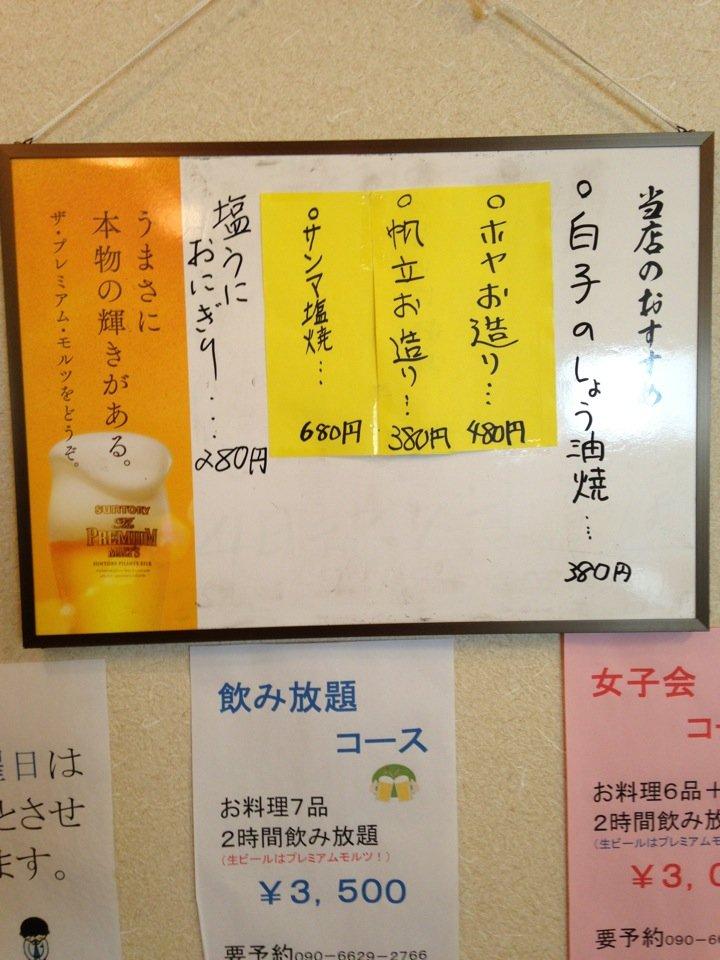 当店のおすすめ
○白子のしょう油焼… 380円
○ホヤお造り… 480円
○帆立お造り… 380円
○サンマ塩焼… 680円
塩うに
おにぎり… 280円
うまさに
本物の輝きがある。
ザ・プレミアム・モルツをどうぞ。
SUNTORY
THE
PREMIUM
MALT'S
SUNTORY PILSNER BEER
曜日は
とさせ
ます。
飲み放題
コース
お料理7品
2時間飲み放題
(生ビールはプレミアムモルツ！)
￥3,500
要予約090-6629-2766
女子会
コー
お料理6品＋
2時間飲み放
(生ビールはプレミアムモ
￥3,0
要予約090-66